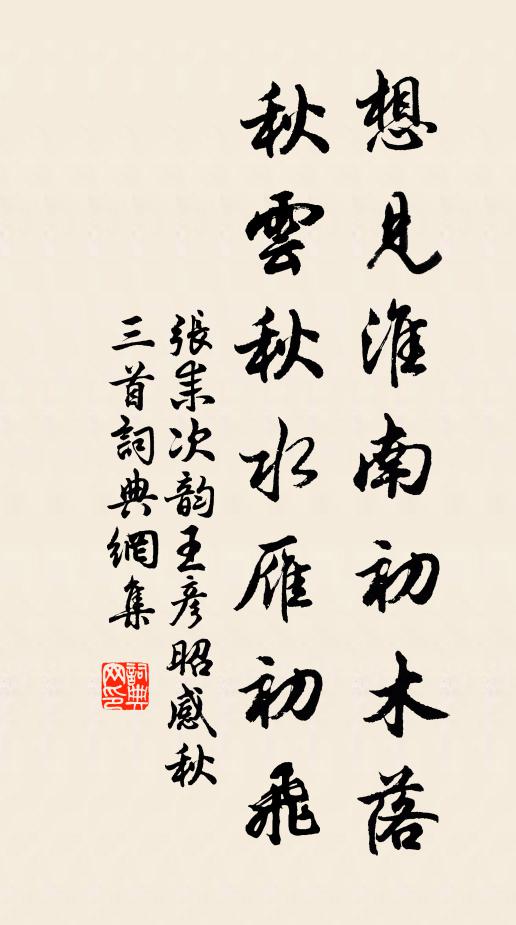 想見淮南初木落
秋雲秋水雁初飛
張耒次韵王彦昭感秋
三首詞典網集
詞典網印